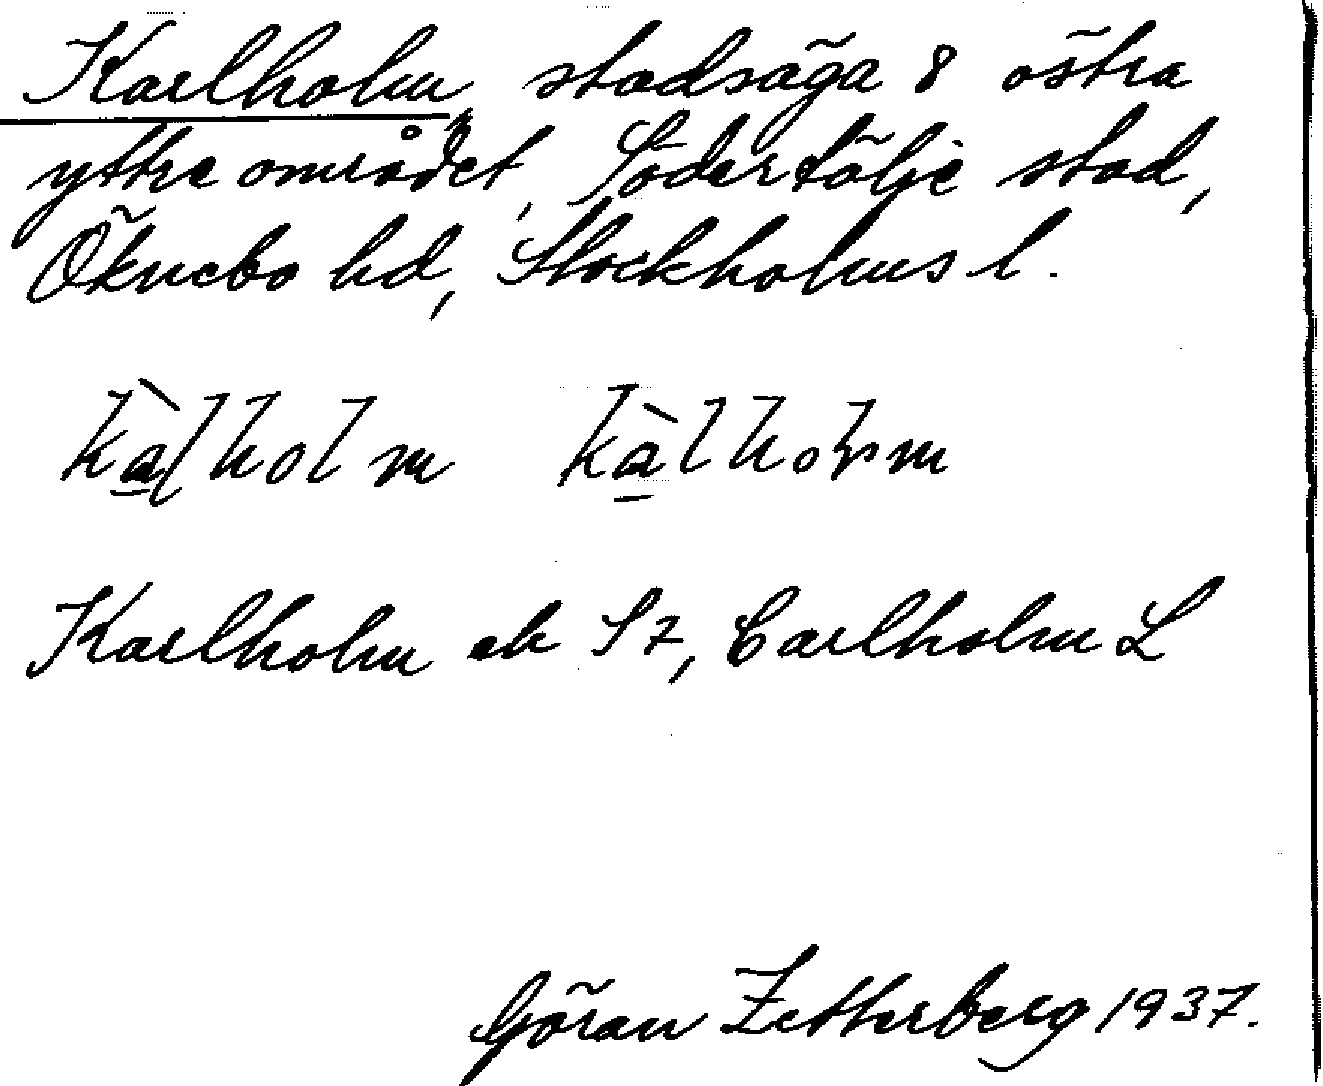 Karlholm, stadsäga 8 östra
yttre området, Södertälje stad,
Öknebo hd, Stockholms l.
kàlholm kàlholm
Karlholm ek S7, Carlholm L
Göran Zetterberg 1937.